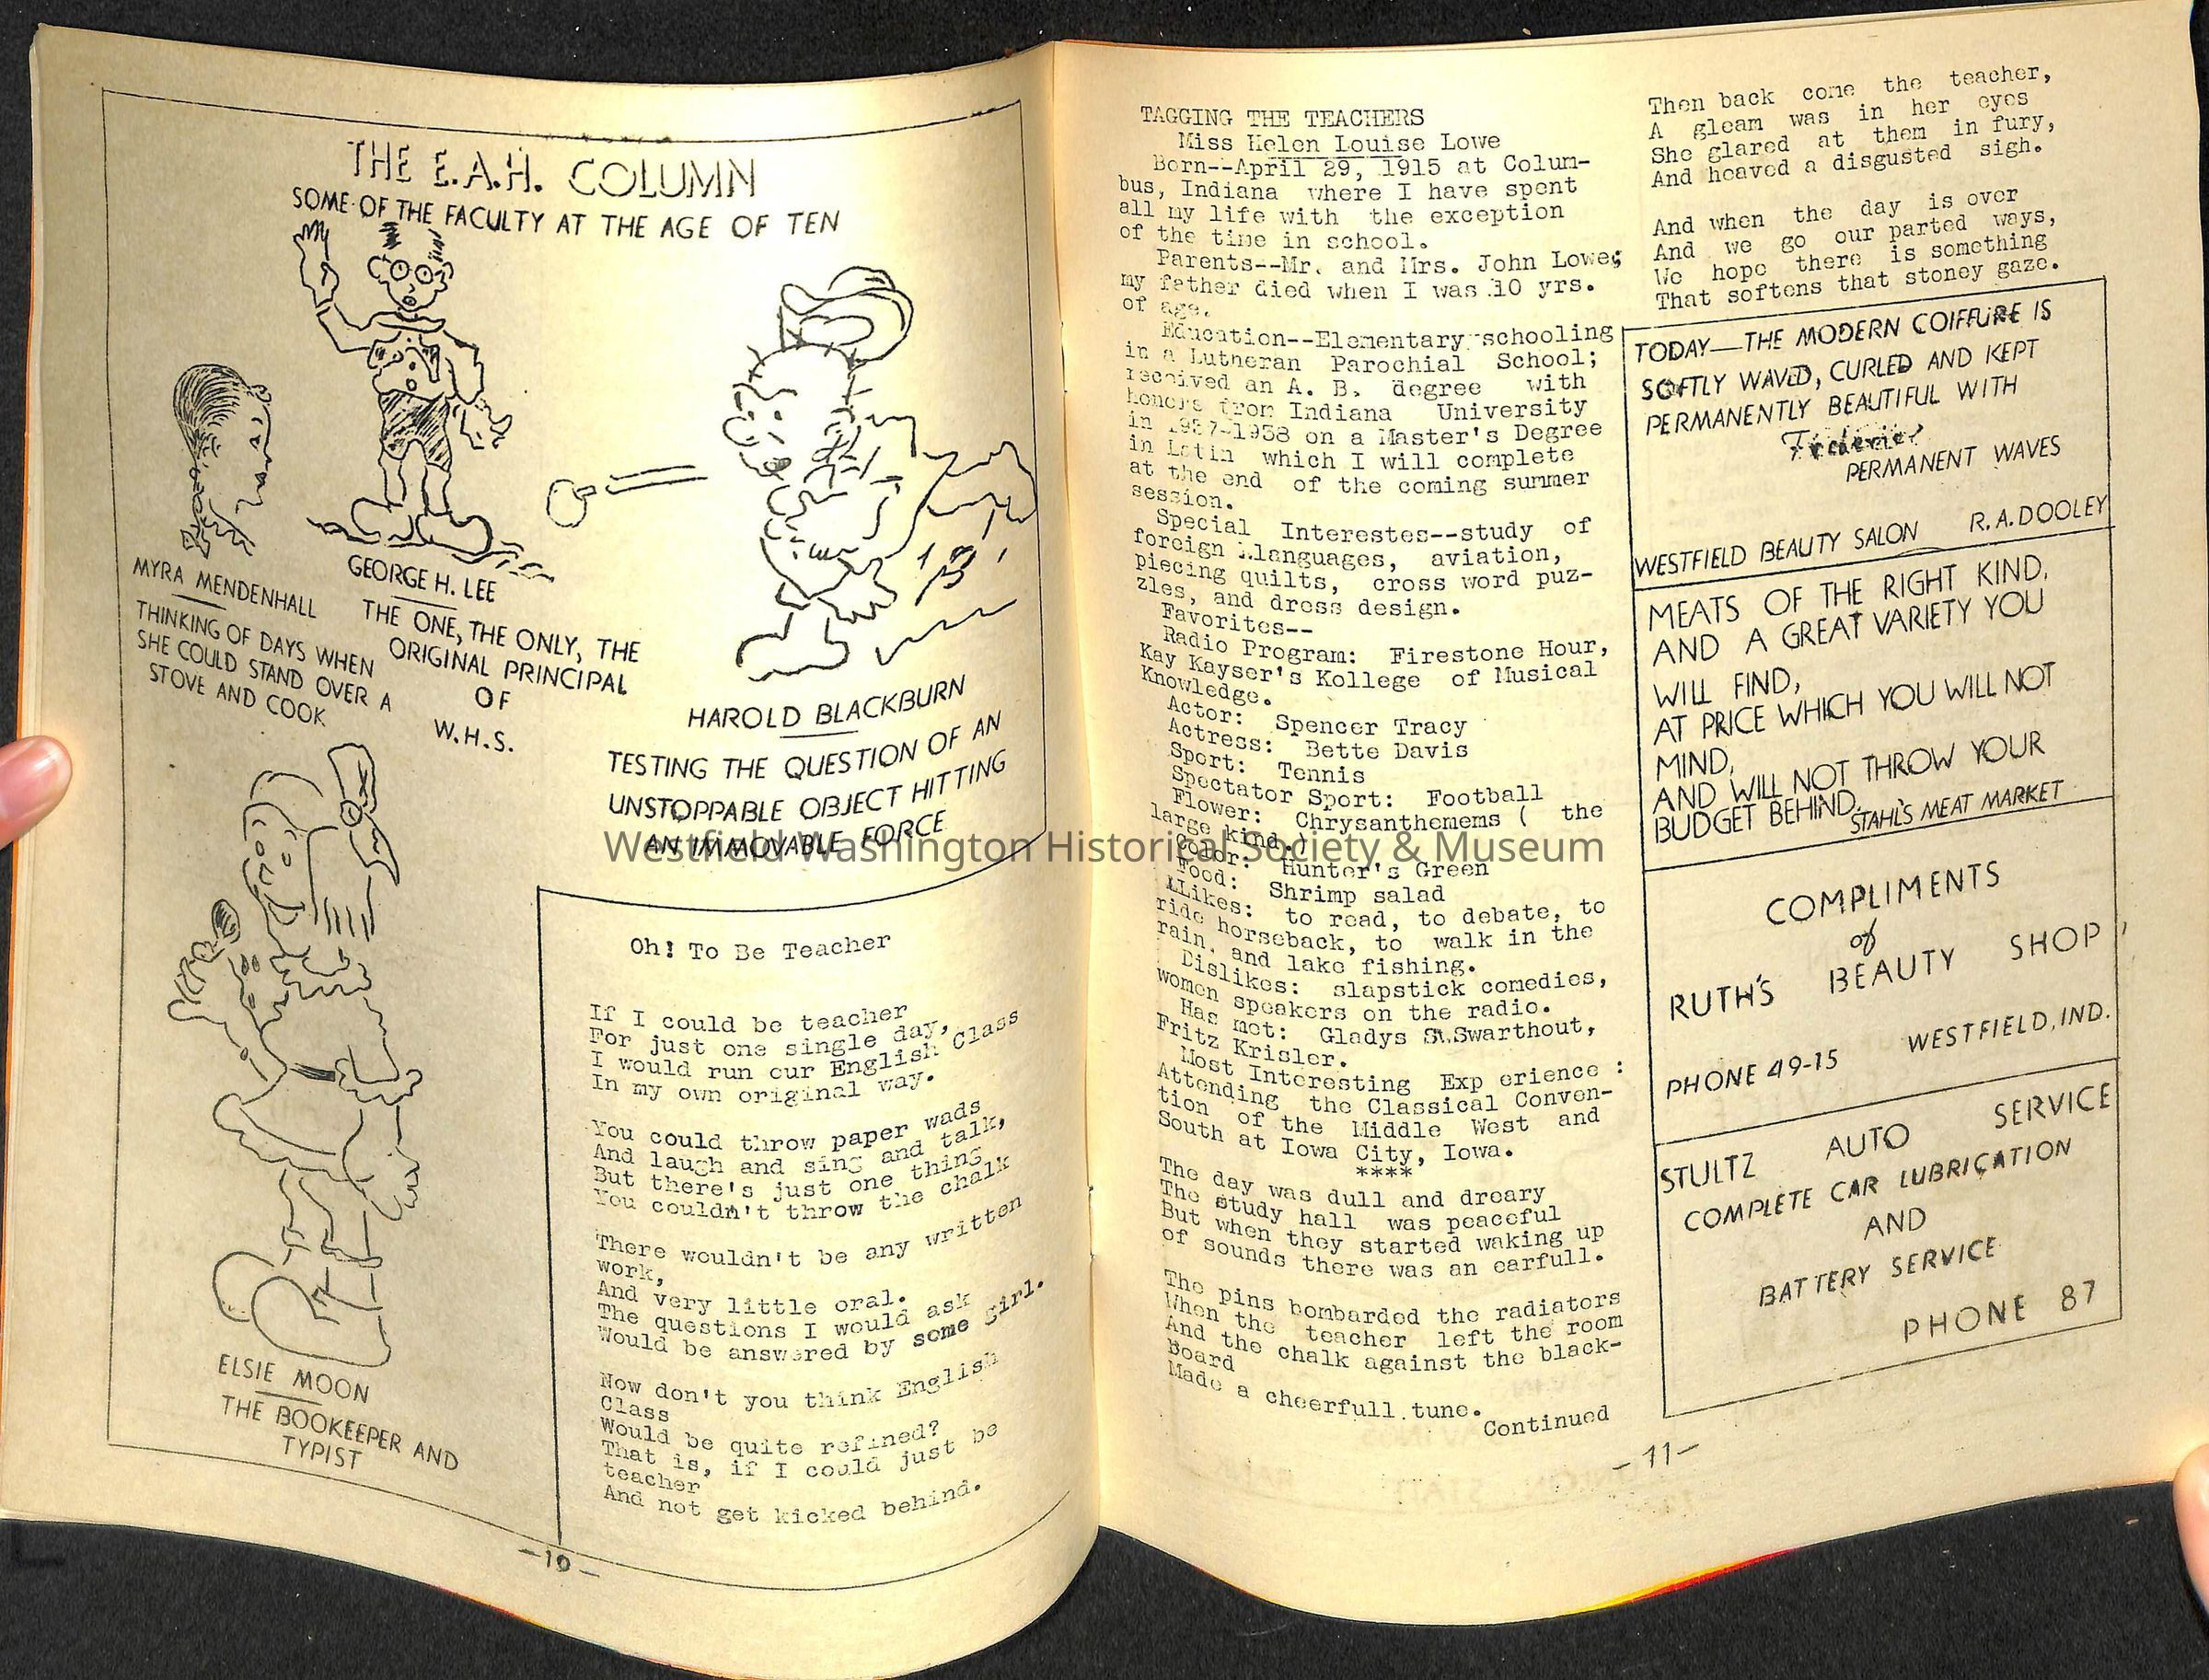 THE E.A.H. COLUMN
SOME OF THE FACULTY AT THE AGE OF TEN
MYRA MENDENHALL
THINKING OF DAYS WHEN
SHE COULD STAND OVER A
STOVE AND COOK
GEORGE H. LEE
THE ONE, THE ONLY, THE
ORIGINAL PRINCIPAL
OF
W.H.S.
HAROLD BLACKBURN
TESTING THE QUESTION OF AN
UNSTOPPABLE OBJECT HITTING
AN IMMOVABLE FORCE
ELSIE MOON
THE BOOKEEPER AND
TYPIST
Oh! To Be Teacher
If I could be teacher
For just one single day,
I would run our English Class
In my own original way.
You could throw paper wads
And laugh and sing and talk,
But there's just one thing
You couldn't throw the chalk
There wouldn't be any written
work,
And very little oral.
The questions I would ask
Would be answered by some girl.
Now don't you think English
Class
Would be quite refined?
That is, if I could just be
teacher
And not get kicked behind.
-10-
TAGGING THE TEACHERS
Miss Helen Louise Lowe
Born--April 29, 1915 at Colum-
bus, Indiana where I have spent
all my life with the exception
of the time in school.
Parents--Mr. and Mrs. John Lowe;
my father died when I was 10 yrs.
of age.
Education--Elementary schooling
in a Lutheran Parochial School;
received an A. B. degree with
honors from Indiana University
in 1937-1938 on a Master's Degree
in Latin which I will complete
at the end of the coming summer
session.
Special Interestes--study of
foreign languages, aviation,
piecing quilts, cross word puz-
zles, and dress design.
Favorites--
Radio Program: Firestone Hour,
Kay Kayser's Kollege of Musical
Knowledge.
Actor: Spencer Tracy
Actress: Bette Davis
Sport: Tennis
Spectator Sport: Football
Flower: Chrysanthemems ( the
large kind.)
Color: Hunter's Green
Food: Shrimp salad
Likes: to read, to debate, to
ride horseback, to walk in the
rain, and lake fishing.
Dislikes: slapstick comedies,
women speakers on the radio.
Has met: Gladys Swarthout,
Fritz Krisler.
Most Interesting Exp erience :
Attending the Classical Conven-
tion of the Middle West and
South at Iowa City, Iowa.
****
The day was dull and dreary
The study hall was peaceful
But when they started waking up
of sounds there was an earfull.
The pins bombarded the radiators
When the teacher left the room
And the chalk against the black-
Board
Made a cheerfull tune.
Continued
Then back come the teacher,
A gleam was in her eyes
She glared at them in fury,
And heaved a disgusted sigh.
And when the day is over
And we go our parted ways,
We hope there is something
That softens that stoney gaze.
TODAY—THE MODERN COIFFURE IS
SOFTLY WAVED, CURLED AND KEPT
PERMANENTLY BEAUTIFUL WITH
Frederics
PERMANENT WAVES
WESTFIELD BEAUTY SALON R.A. DOOLEY
MEATS OF THE RIGHT KIND,
AND A GREAT VARIETY YOU
WILL FIND,
AT PRICE WHICH YOU WILL NOT
MIND,
AND WILL NOT THROW YOUR
BUDGET BEHIND.
STAHL'S MEAT MARKET
COMPLIMENTS
of
RUTH'S BEAUTY SHOP
PHONE 49-15 WESTFIELD, IND.
STULTZ AUTO SERVICE
COMPLETE CAR LUBRICATION
AND
BATTERY SERVICE
PHONE 87
-11-
Westfield Washington Historical Society & Museum